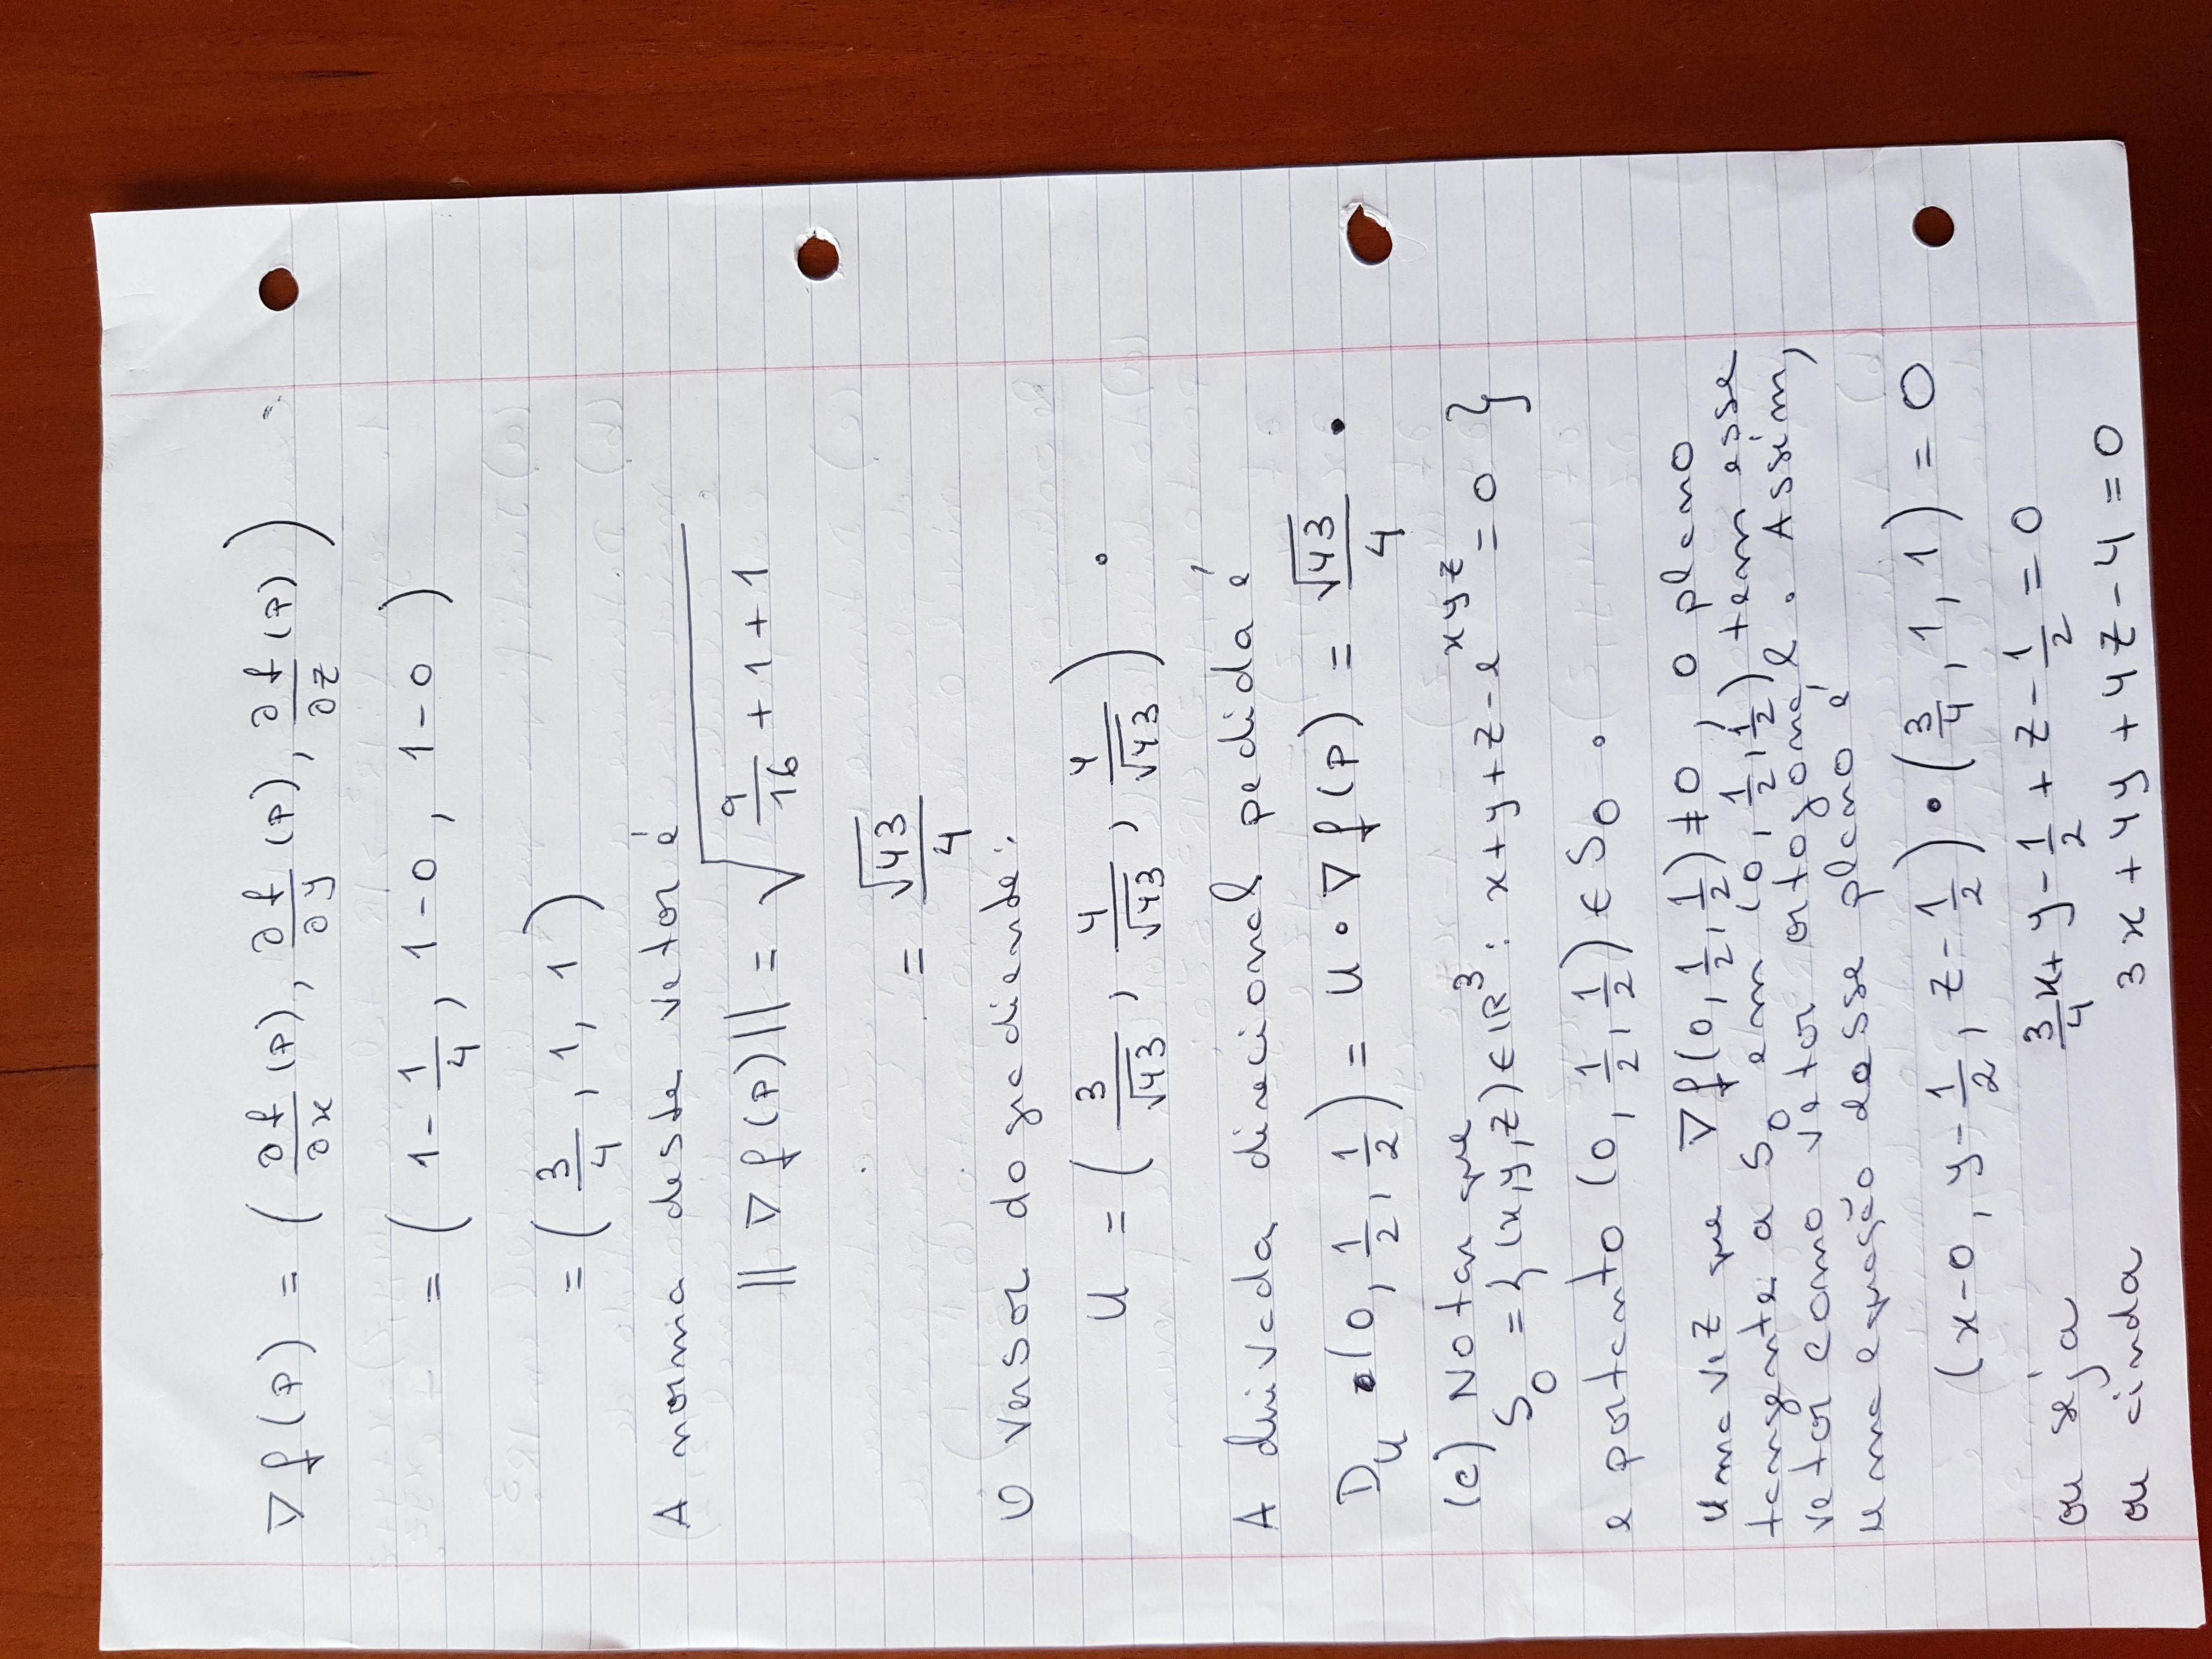 ∇f(P) = ( ∂f/∂x (P), ∂f/∂y (P), ∂f/∂z (P) ) =
= ( 1 - 1/4, 1 - 0, 1 - 0 )
= ( 3/4, 1, 1 )
A norma deste vetor é
||∇f(P)|| = √(9/16 + 1 + 1)
= √43/4
O versor do gradiente:
u = ( 3/√43, 4/√43, 4/√43 ).
A derivada direcional pedida é
D_u (0, 1/2, 1/2) = u • ∇f(P) = √43/4.
(c) Notar que
S_0 = {(x,y,z) ∈ ℝ^3 : x+y+z-e^{xyz} = 0}
e portanto (0, 1/2, 1/2) ∈ S_0.
Uma vez que ∇f(0, 1/2, 1/2) ≠ 0, o plano
tangente a S_0 em (0, 1/2, 1/2) tem esse
vetor como vetor ortogonal. Assim,
uma equação desse plano é
(x-0, y-1/2, z-1/2) • (3/4, 1, 1) = 0
ou seja 3/4 x + y - 1/2 + z - 1/2 = 0
ou ainda 3x + 4y + 4z - 4 = 0